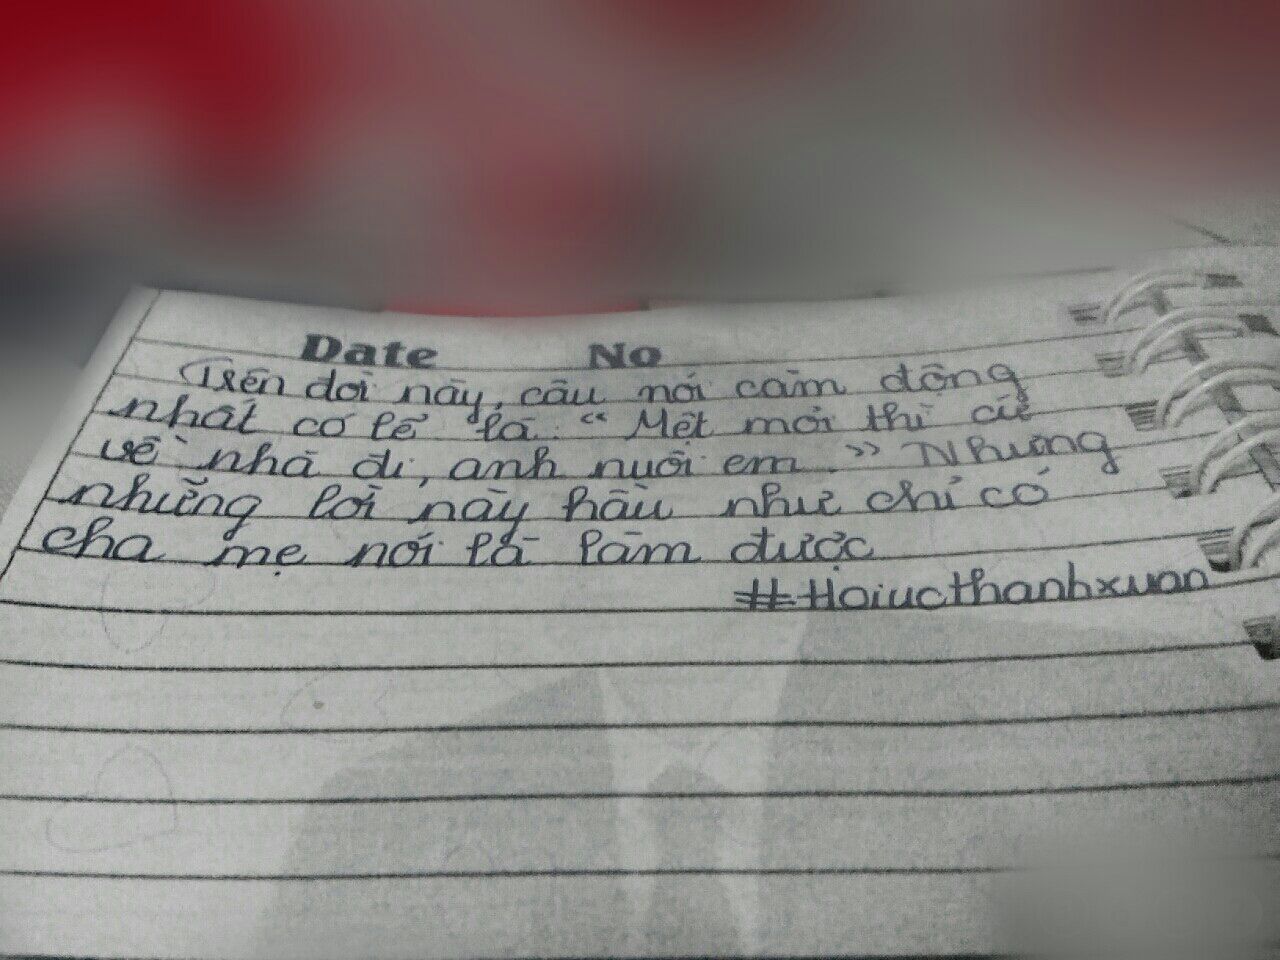 Date No
Trên đời này, câu nói cảm động
nhất có lẽ là: "Mệt mỏi thì cứ
về nhà đi, anh nuôi em." Nhưng
những lời này hầu như chỉ có
cha mẹ nói là làm được
#Hoiucthanhxuan